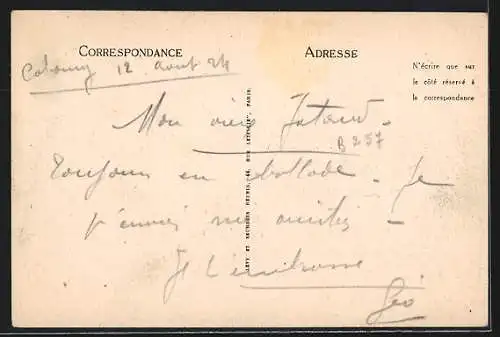 CORRESPONDANCE
ADRESSE
N'écrire que sur
le côté réservé à
la correspondance
12 août 24
Mon vieux
B 257
Toujours en ballade - Je
m'ennuie
Je t'embrasse
Géo
LÉVY ET NEURDEIN RÉUNIS, 44, RUE LETELLIER, PARIS